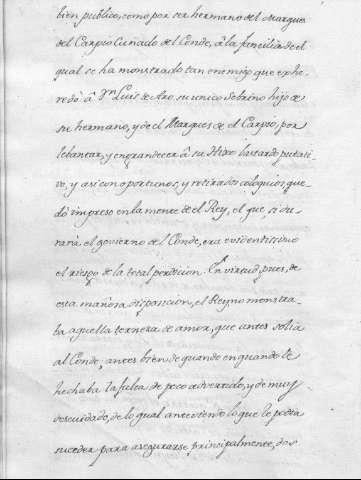 bien publico, como por ser hermano del Marques
del Carpio Cuñado del Conde, â la familia de el
qual se ha monstrado tan enemigo que exhe-
redò â Dn. Luis de Aro su unico sobrino hijo de
su hermano, y de el Marques de el Carpio, por
lebantar, y engrandecer â su Hixo bastardo putati-
vo, y asi con oportunos, y retirados cologuios, que-
dò impreso en la mente de el Rey, el que, si du-
rara el govierno del Conde, era evidentissimo
el riesgo de la total perdicion. En virtud, pues, de
esta mañosa disposicion, el Reyno monstra-
ba aquella ternera de amor, que antes solia
al Conde; antes bien de quando en quando le
hechaba la falta de poco advertido, y de muy
descuidado, de lo qual anteviendo lo que le podia
suceder para asegurarse, principalmente, dos